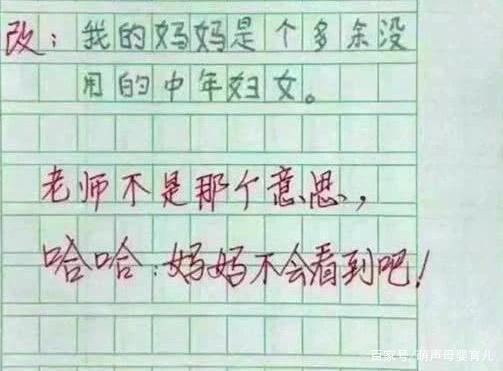 改：我的妈妈是个多余没
用的中年妇女。
老师不是那个意思，
哈哈：妈妈不会看到吧！
百家号/萌声母婴育儿